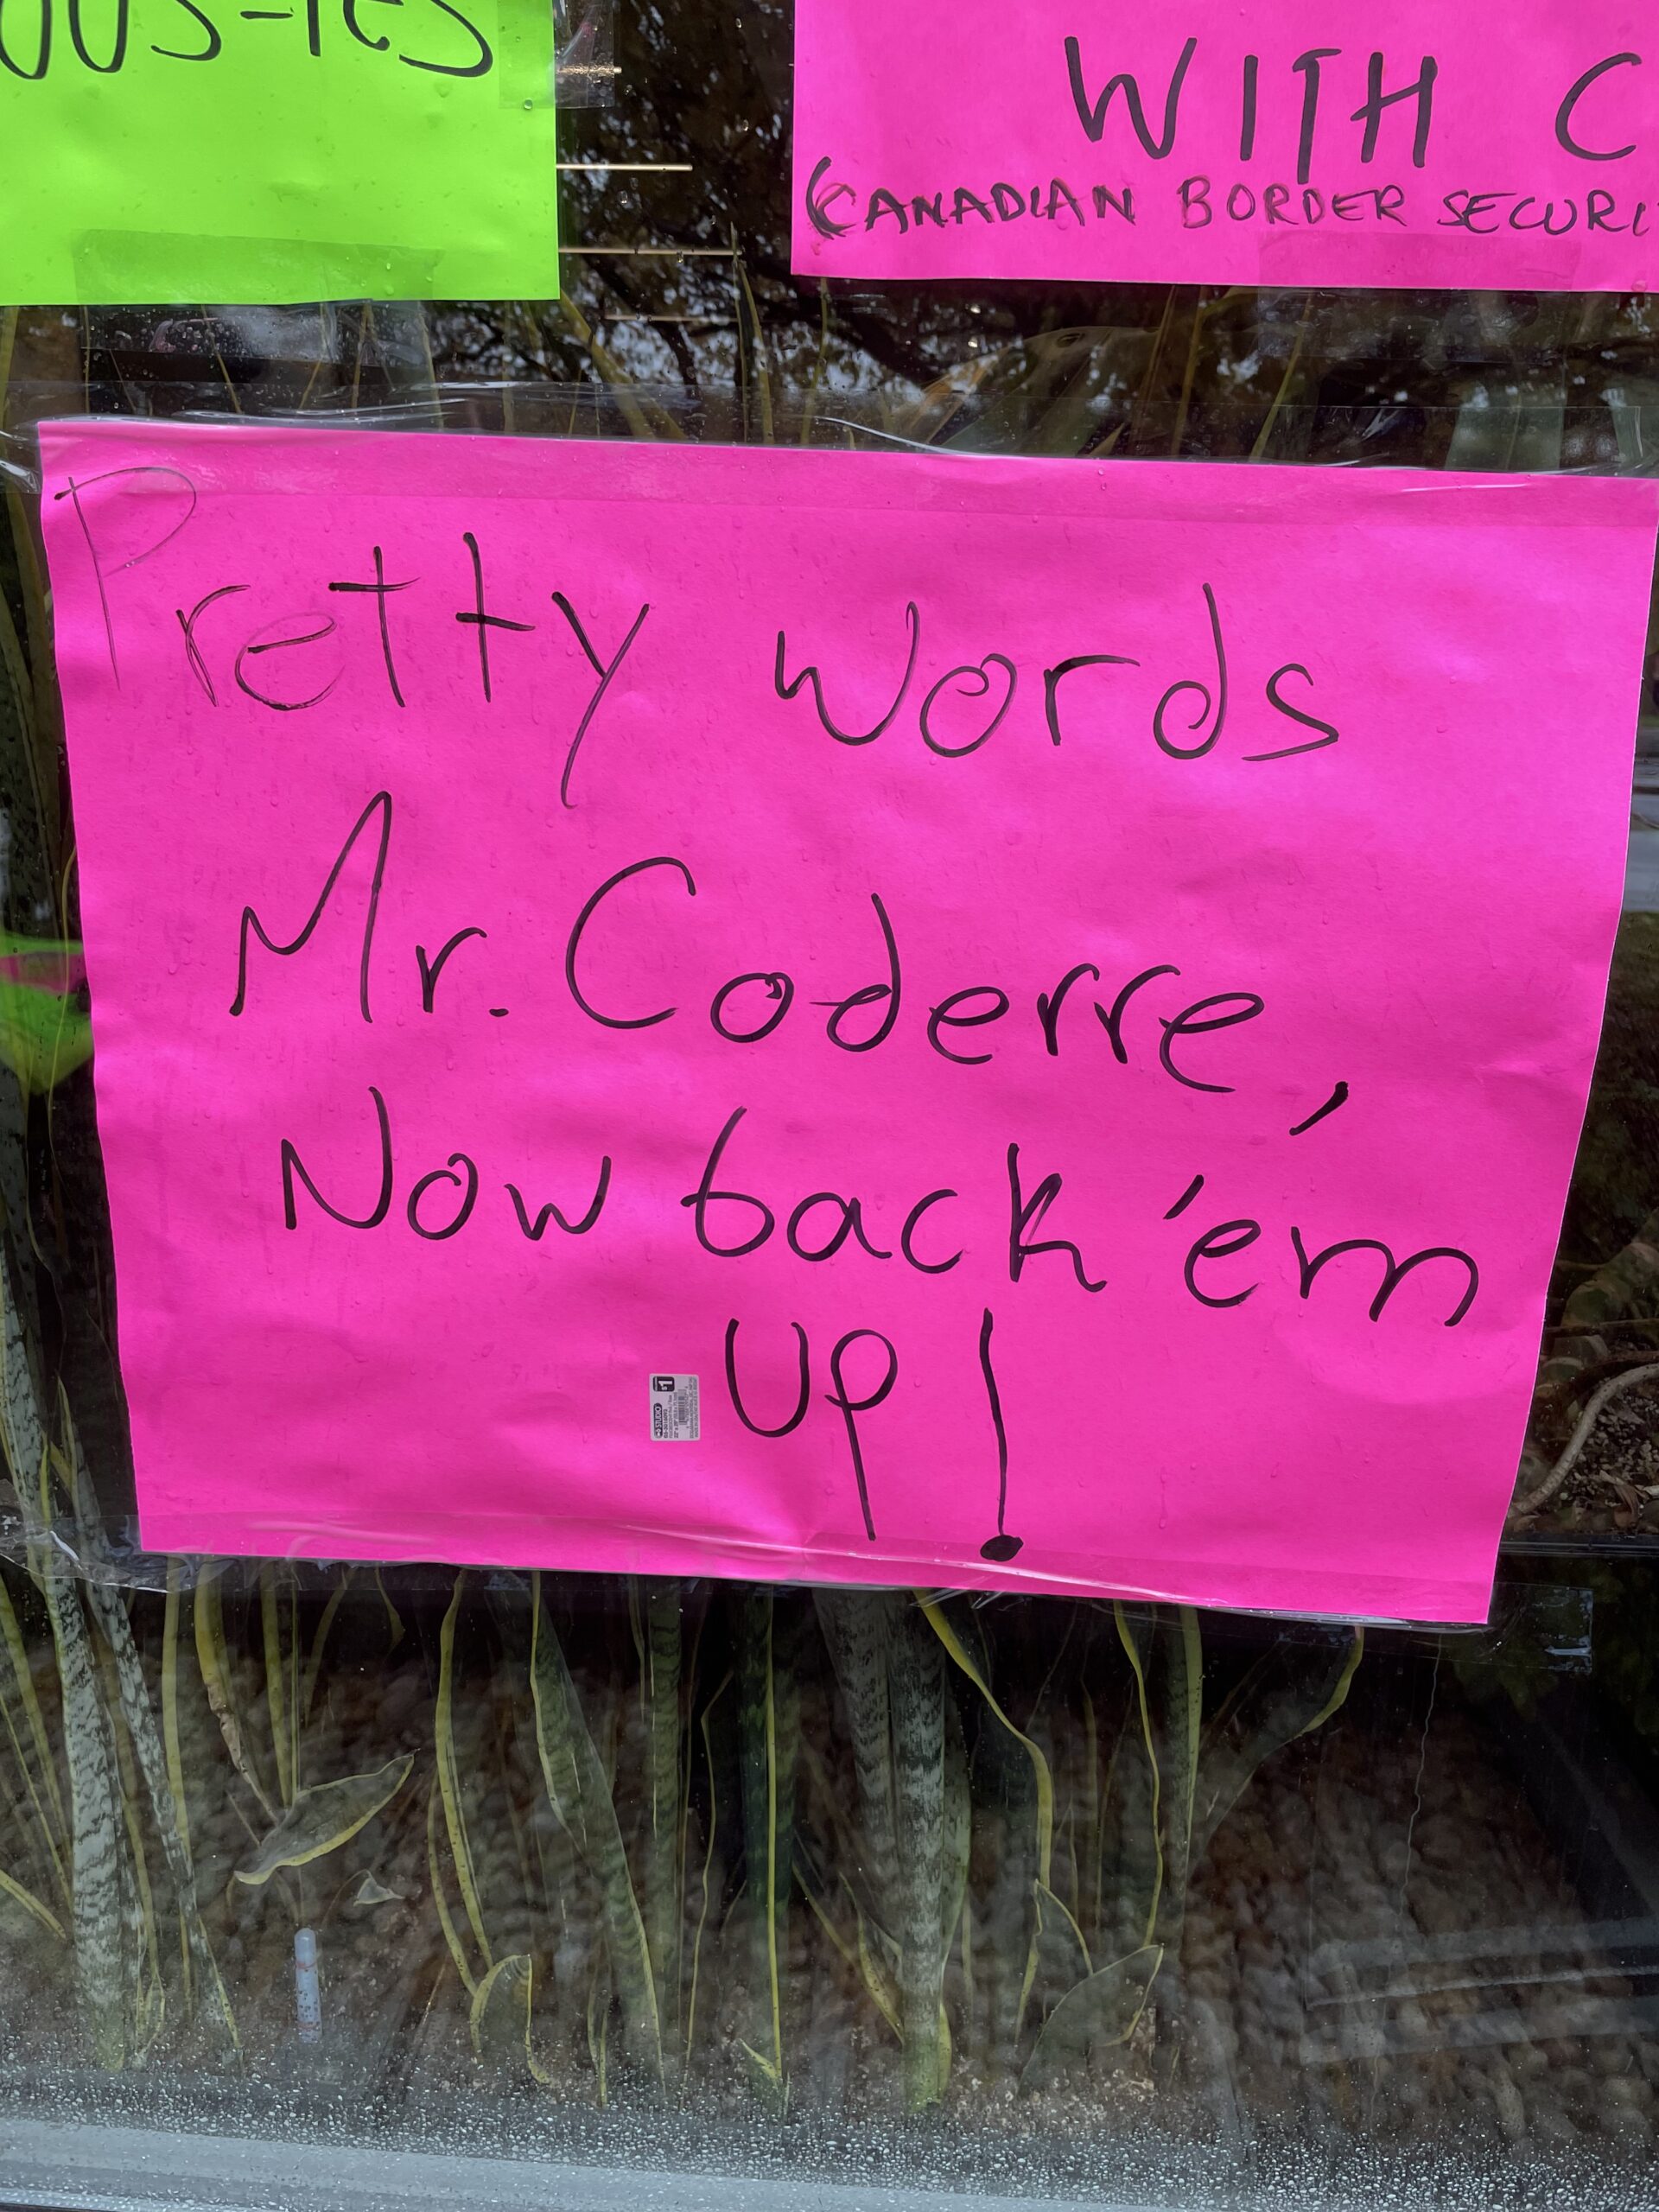 WITH C
(CANADIAN BORDER SECURI
Pretty words
Mr. Coderre,
Now back 'em
up!
$1
STUDIO